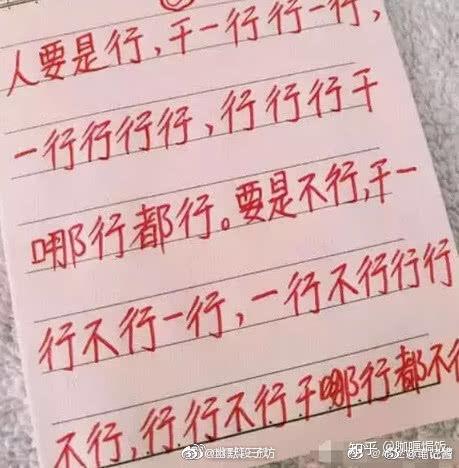 人要是行,干一行行一行,
一行行行行,行行行干
哪行都行。要是不行,干一
行不行一行,一行不行行行
不行,行行不行干哪行都不行
知乎 @咖喱焗饭
@幽默段子坊